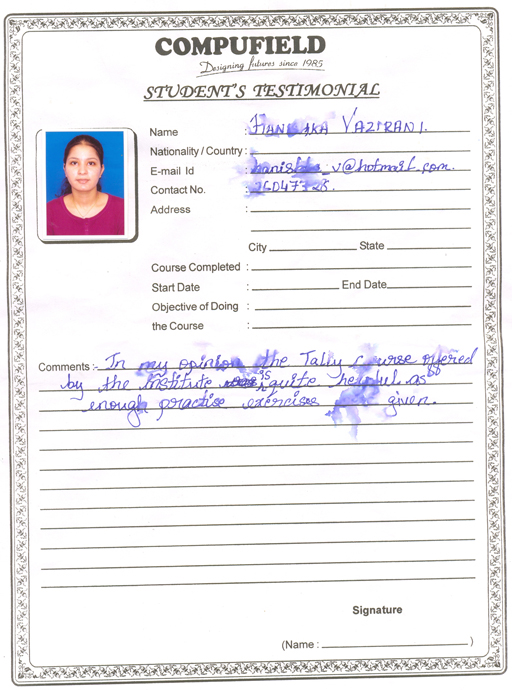 COMPUFIELD
Designing futures since 1985
STUDENT'S TESTIMONIAL
Name : VAZIRANI.
Nationality / Country :
E-mail Id : _v@hotmail.com.
Contact No. :
Address :
City State
Course Completed :
Start Date : End Date
Objective of Doing :
the Course :
Comments :- In my opinion the Tally offered
by the institute is quite helpful as
enough practise exercises given.
Signature
(Name : )